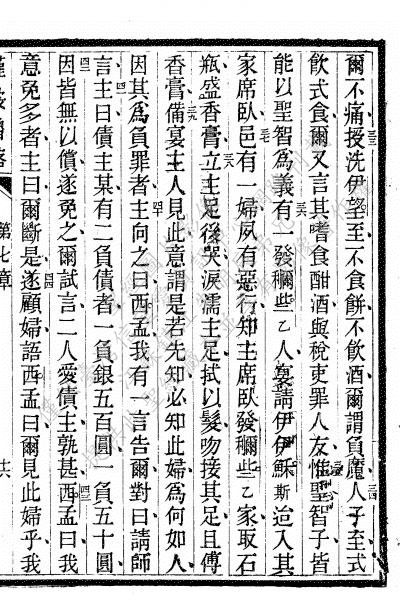 爾不痛授洗伊望至不食餅不飲酒爾謂負魔人子至式
飲式食爾又言其嗜食酣酒與稅吏罪人友惟聖智子皆
能以聖智爲義有一發穪些乙人宴請伊伊穌斯迨入其
家席臥邑有一婦夙有惡行知主席臥發穪些乙家取石
瓶盛香膏立主足後哭淚濡主足拭以髮吻接其足且傅
香膏備宴主人見此意謂是若先知必知此婦爲何如人
因其爲負罪者主向之曰西孟我有一言告爾對曰請師
言主曰債主某有二負債者一負銀五百圓一負五十圓
因皆無以償遂免之爾試言二人愛債主孰甚西孟曰我
意免多者主曰爾斷是遂顧婦語西孟曰爾見此婦乎我
第七章